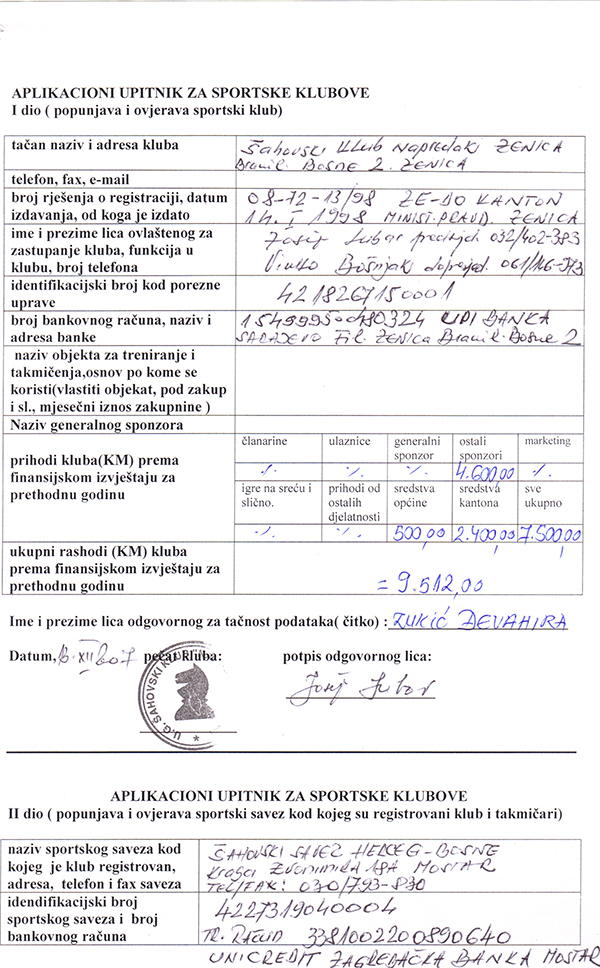 APLIKACIONI UPITNIK ZA SPORTSKE KLUBOVE
I dio ( popunjava i ovjerava sportski klub)
tačan naziv i adresa kluba
Šahovski klub Napredak ZENICA
Branil. Bosne 2. ZENICA
telefon, fax, e-mail
broj rješenja o registraciji, datum izdavanja, od koga je izdato
08-12-13/98 ZE-DO KANTON
14. I 1998 MINIST. PRAVD. ZENICA
ime i prezime lica ovlaštenog za zastupanje kluba, funkcija u klubu, broj telefona
Josip Lubar 032/402-383
Vinko Bošnjak 061/146-
identifikacijski broj kod porezne uprave
4218267150001
broj bankovnog računa, naziv i adresa banke
BANKA
SARAJEVO Fil. ZENICA Branil. Bosne 2
naziv objekta za treniranje i takmičenja,osnov po kome se koristi(vlastiti objekat, pod zakup i sl., mjesečni iznos zakupnine )
Naziv generalnog sponzora
prihodi kluba(KM) prema finansijskom izvještaju za prethodnu godinu
članarine ulaznice generalni sponzor ostali sponzori marketing
·/. ·/. ·/. 4.600,00 ·/.
igre na sreću i slično. prihodi od ostalih djelatnosti sredstva općine sredstva kantona sve ukupno
·/. ·/. 500,00 2.400,00 7.500,00
ukupni rashodi (KM) kluba prema finansijskom izvještaju za prethodnu godinu
= 9.512,00
Ime i prezime lica odgovornog za tačnost podataka( čitko) : ZUKIĆ DEVAHIRA
Datum, XII 2007 pečat kluba: potpis odgovornog lica:
U.G. ŠAHOVSKI KLUB
APLIKACIONI UPITNIK ZA SPORTSKE KLUBOVE
II dio ( popunjava i ovjerava sportski savez kod kojeg su registrovani klub i takmičari)
naziv sportskog saveza kod kojeg je klub registrovan, adresa, telefon i fax saveza
ŠAHOVSKI SAVEZ HERCEG-BOSNE
Kralja Zvonimira 18A MOSTAR
TEL/FAX: 030/793-830
idendifikacijski broj sportskog saveza i broj bankovnog računa
4227319040004
TR. RAČUN 3381002200890640
UNICREDIT ZAGREBAČKA BANKA MOSTAR